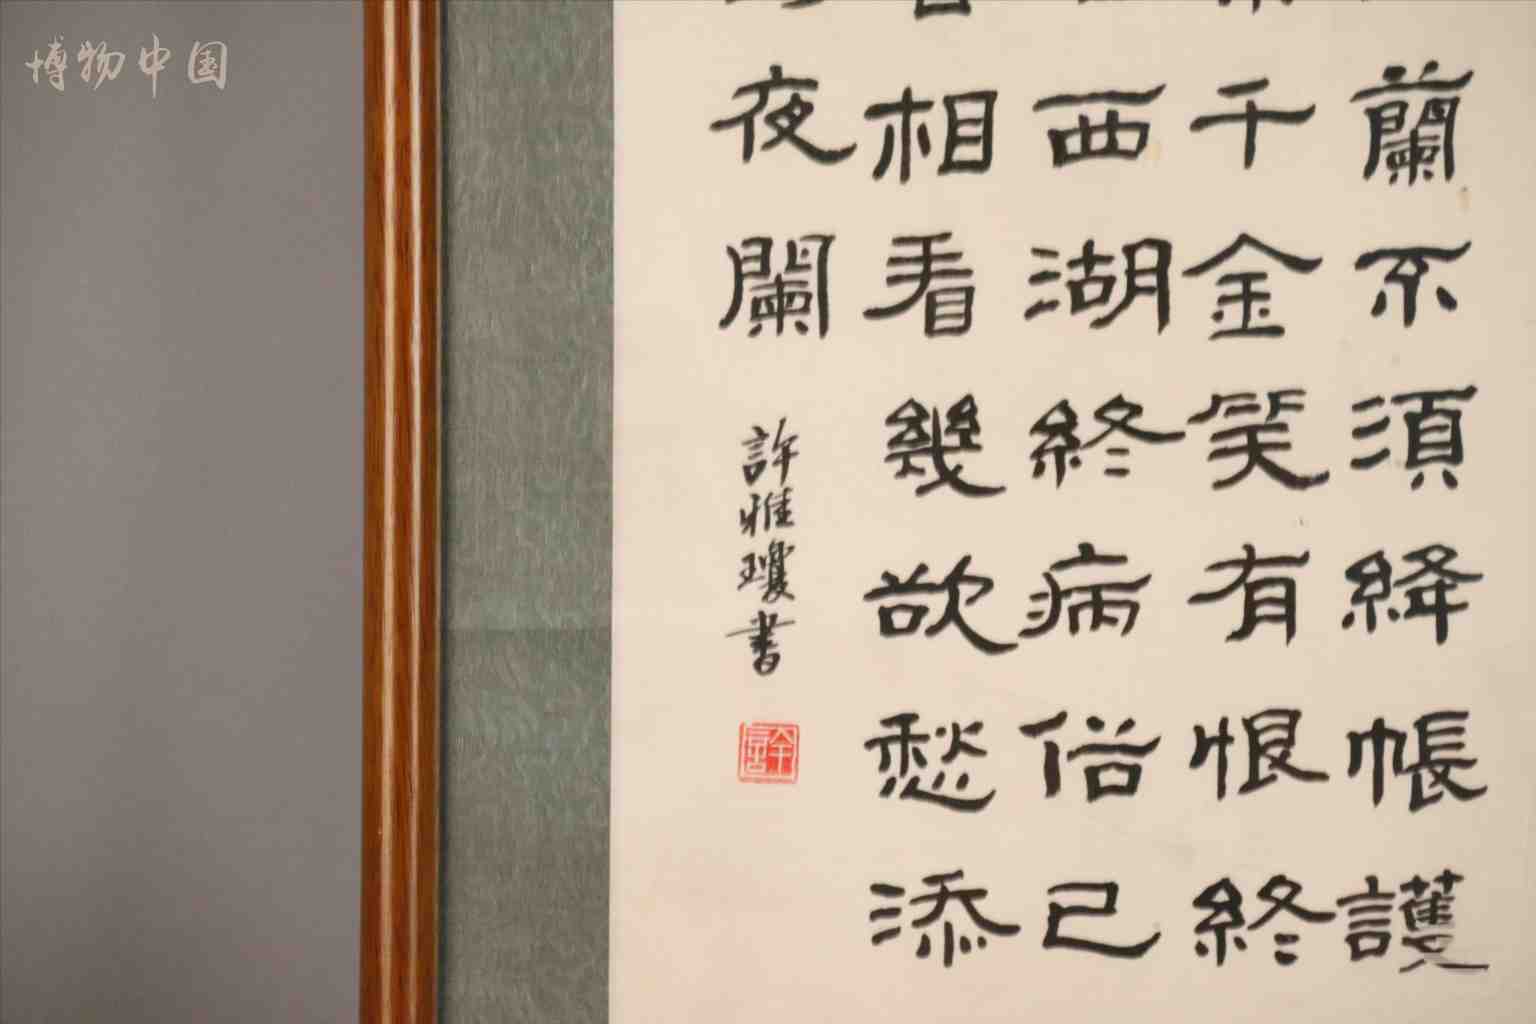 博物中国
蘭不須絳帳護
千金笑有恨終
西湖終病俗已
相看幾欲愁添
夜闌
許雅瓊書